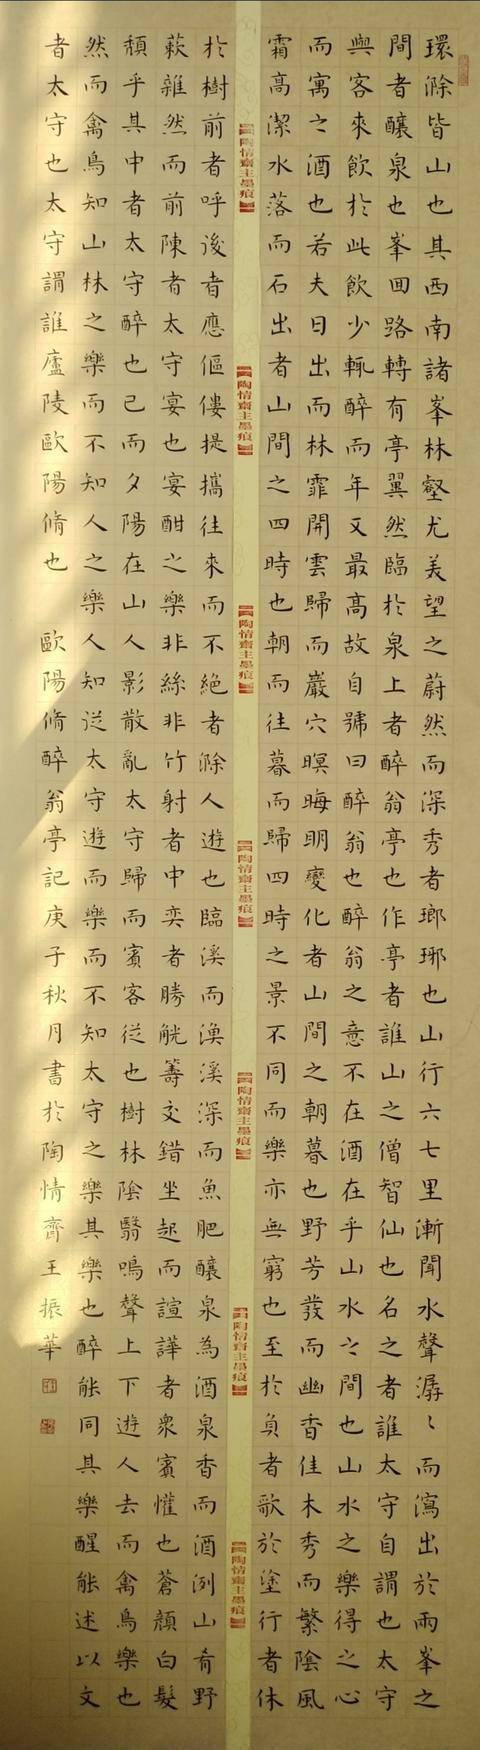 環滁皆山也其西南諸峯林壑尤美望之蔚然而深秀者瑯琊也山行六七里漸聞水聲潺〻而瀉出於兩峯之
間者釀泉也峯回路轉有亭翼然臨於泉上者醉翁亭也作亭者誰山之僧智仙也名之者誰太守自謂也太守
與客來飲於此飲少輒醉而年又最高故自號曰醉翁也醉翁之意不在酒在乎山水之間也山水之樂得之心
而寓之酒也若夫日出而林霏開雲歸而巖穴暝晦明變化者山間之朝暮也野芳發而幽香佳木秀而繁陰風
霜高潔水落而石出者山間之四時也朝而往暮而歸四時之景不同而樂亦無窮也至於負者歌於塗行者休
陶情齋主墨痕
陶情齋主墨痕
陶情齋主墨痕
陶情齋主墨痕
陶情齋主墨痕
陶情齋主墨痕
陶情齋主墨痕
於樹前者呼後者應傴僂提攜往來而不絕者滁人遊也臨溪而漁溪深而魚肥釀泉為酒泉香而酒洌山肴野
蔌雜然而前陳者太守宴也宴酣之樂非絲非竹射者中奕者勝觥籌交錯坐起而諠譁者衆賓懽也蒼顏白髮
頹乎其中者太守醉也已而夕陽在山人影散亂太守歸而賓客從也樹林陰翳鳴聲上下遊人去而禽鳥樂也
然而禽鳥知山林之樂而不知人之樂人知從太守遊而樂而不知太守之樂其樂也醉能同其樂醒能述以文
者太守也太守謂誰廬陵歐陽脩也 歐陽脩醉翁亭記庚子秋月書於陶情齊王振華